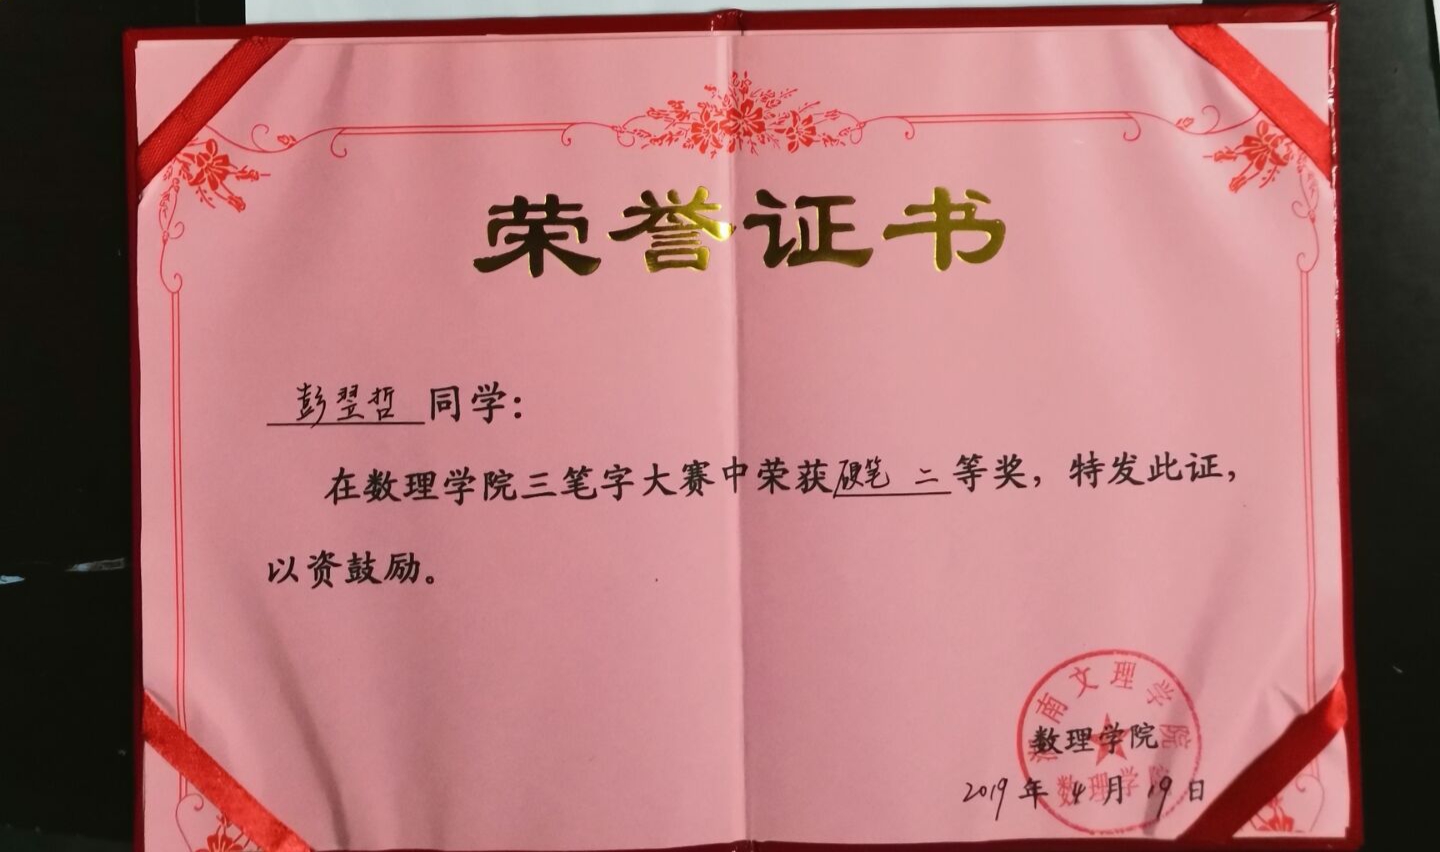 荣誉证书
彭翌哲同学：
在数理学院三笔字大赛中荣获硬笔 二等奖，特发此证，
以资鼓励。
湖南文理学院
数理学院
数理学院
2019年4月19日